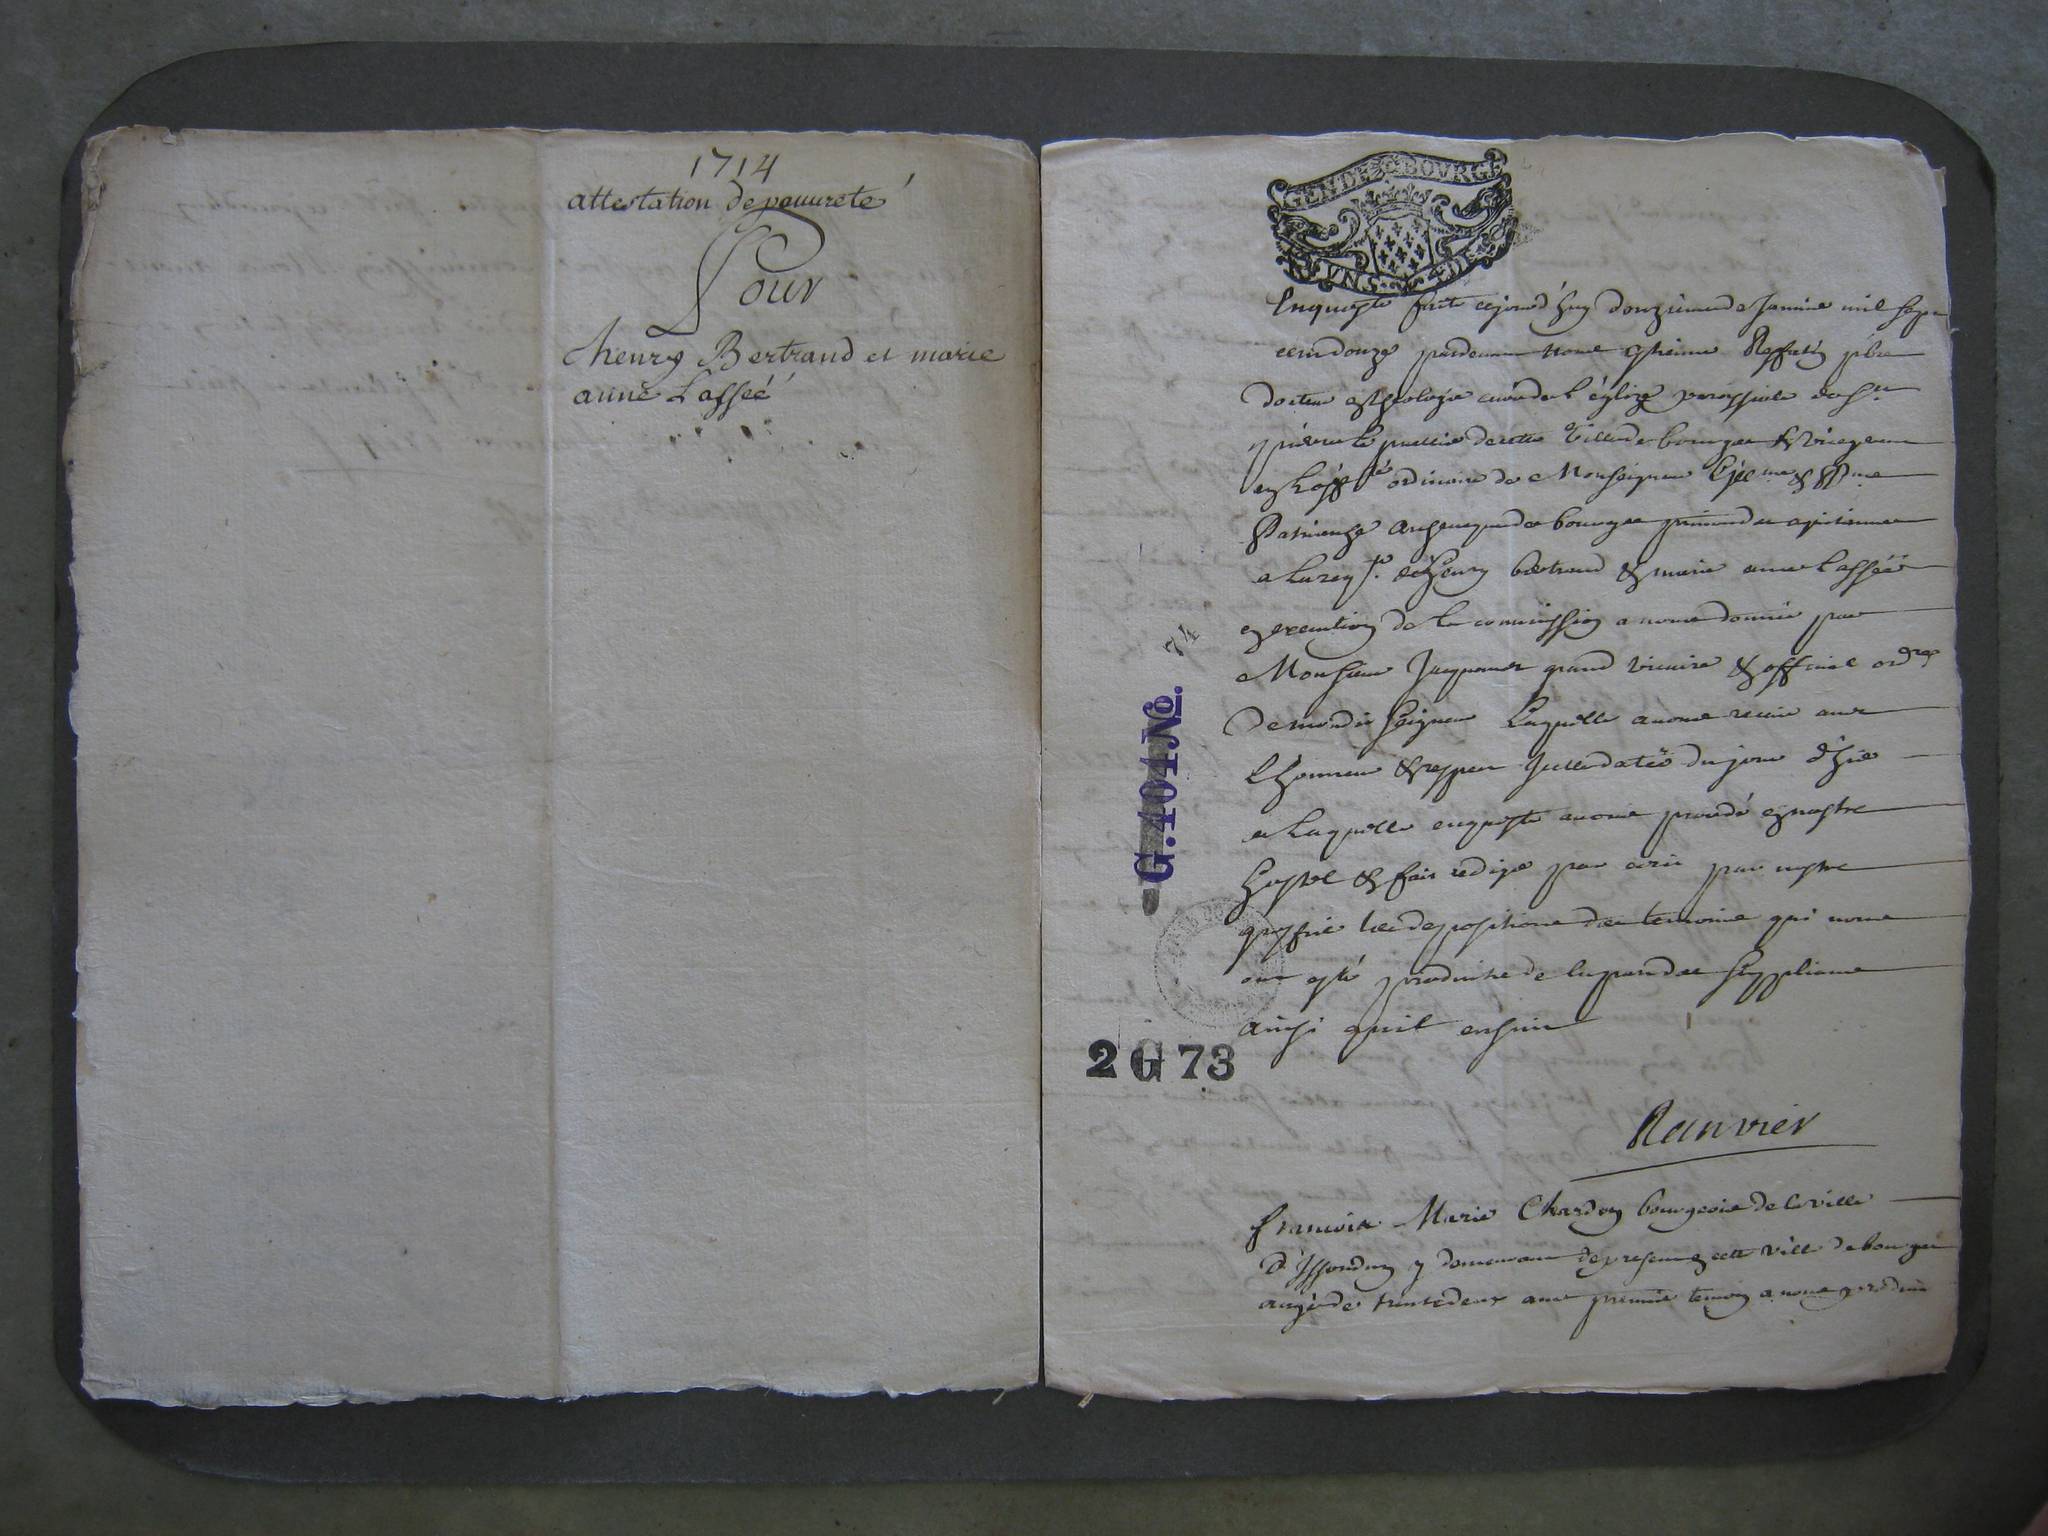 1714
attestation de pauureté
Pour
henry Bertrand et marie
anne Lasséé
GEN DE BOVRGE
Enqueste faite cejourd'huy douzieme de Janvier mil sept
cens douze pardevant nous estienne
docteur en theologie curé de l'église parroissiale de St
pierre le de cette Ville de bourges &
en ordinaire de Monseigneur
archeuesque de bourges primat des aquitaines
a la reqte. de henry bertrand & marie anne Lasséé
en execution de la commission a nous donnée par
Monsieur grand vicaire & official ordre
de mondit seigneur Laquelle auons receue auec
L'honneur & respect Jcelle datée du jour d'hier
a Laquelle enqueste auons procédé en nostre
hostel & fait rediger par ecrit par nostre
greffier les depositions des temoins qui nous
ont esté produits de la part des supplians
ainsi quil ensuit
Ranvier
G. 404 No. 74
2 G 73
francois Marie Chardon bourgeois de la ville
d'Yssoudun y demeurant de present en cette ville de bourges
aagé de trente deux ans premier temoin a nous produit